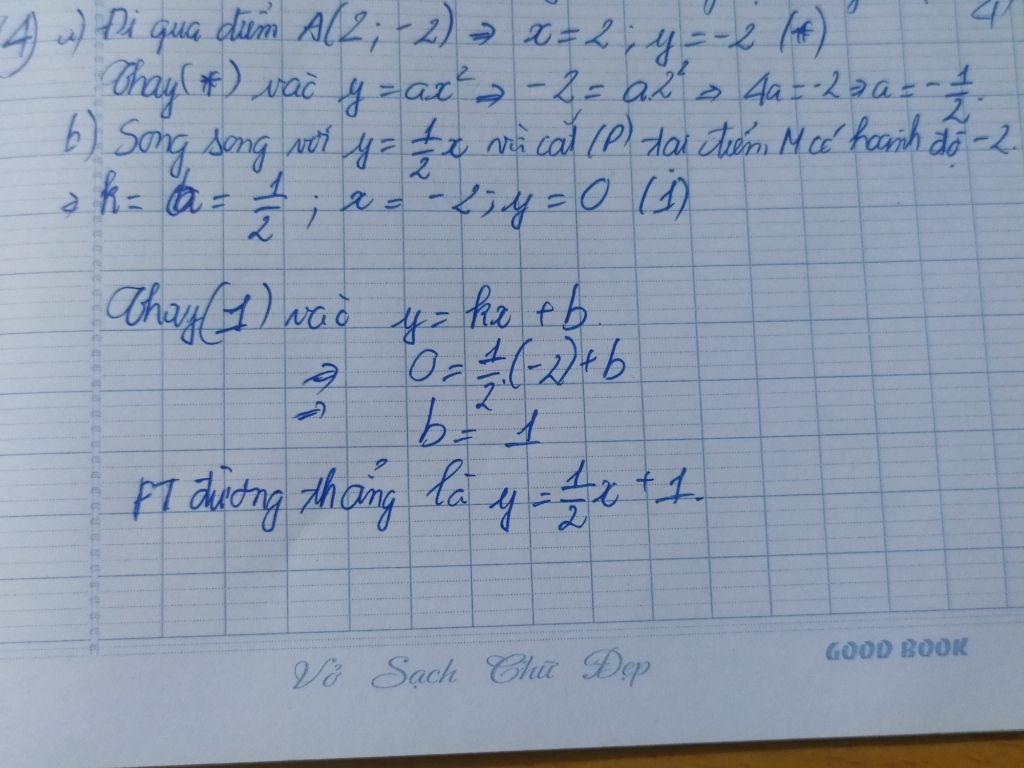 4) a) Đi qua điểm A(2; -2) ⇒ x = 2 ; y = -2 (*)
Thay (*) vào y = ax² ⇒ -2 = a2² ⇒ 4a = -2 ⇒ a = -1/2.
b) Song song với y = 1/2 x và cắt (P) tại điểm M có hoành độ -2.
⇒ k = a = 1/2 ; x = -2; y = 0 (1)
Thay (1) vào y = kx + b.
⇒ 0 = 1/2.(-2) + b
⇒ b = 1
PT đường thẳng là y = 1/2 x + 1.
Vở Sạch Chữ Đẹp
GOOD BOOK